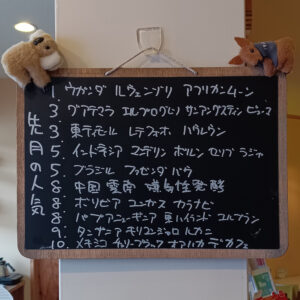 先月の人気
1. ウガンダ ルウェンゾリ アフリカンムーン
3. グアテマラ エルプログレソ サンアグスティン
3. 東ティモール レテフォホ
5. インドネシア スマトラ
5. ブラジル ファゼンダ バウ
8. 中国 雲南 嫌気性発酵
8. ボリビア ユンガス カラナビ
8. パプアニューギニア 東ハイランド コルブラン
9. タンザニア キリマンジャロ ルカニ
10. メキシコ オアハカ デカフェ